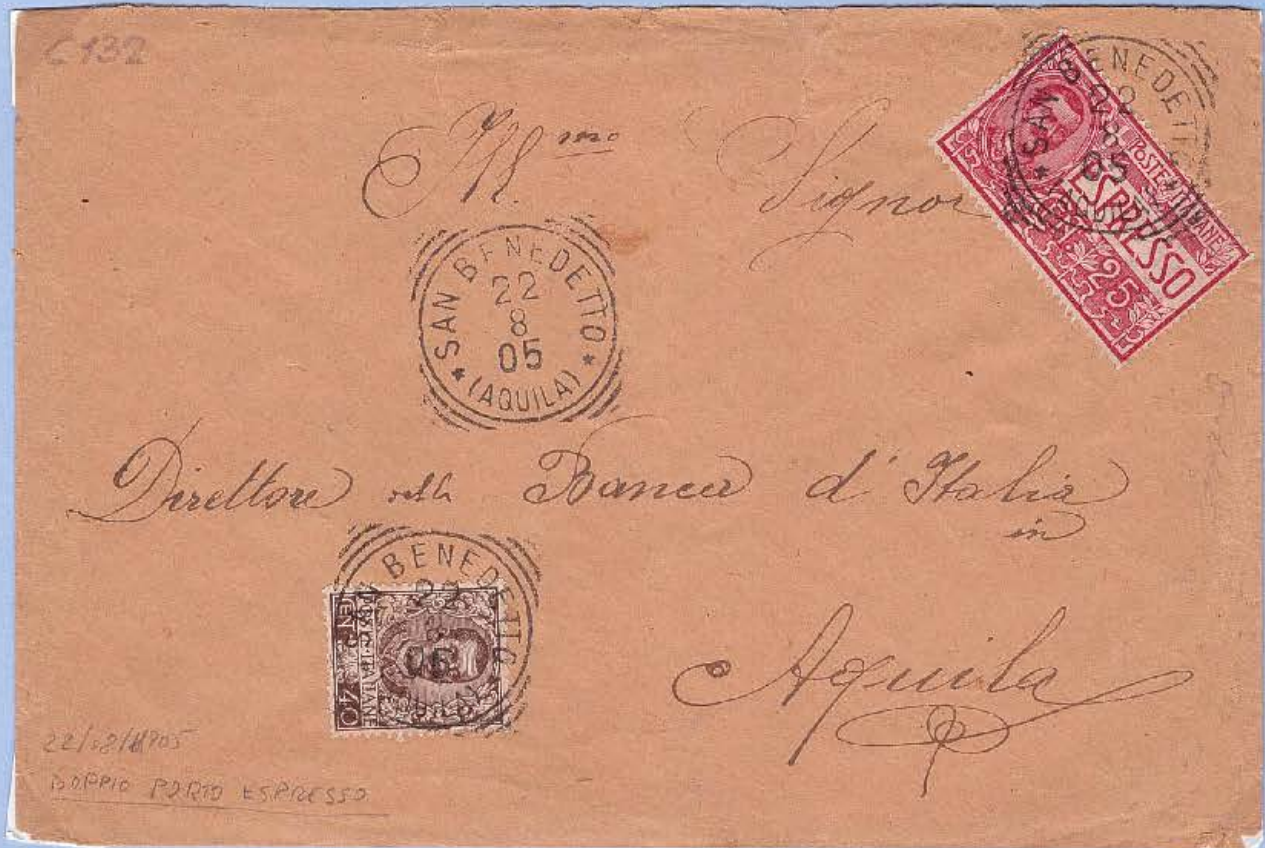 C132
Ill.mo Signor
SAN BENEDETTO
22
8
05
(AQUILA)
POSTE ITALIANE
ESPRESSO
25
SAN BENEDETTO
22
8
05
(AQUILA)
Direttore della Banca d'Italia
in
Aquila
BENEDETTO
22
8
05
POSTE ITALIANE
CENT. 40
22/08/1905
DOPPIO PORTO ESPRESSO